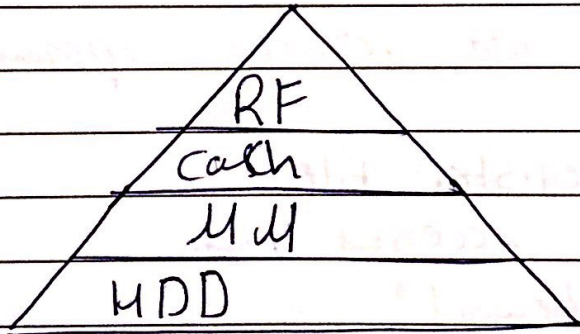 RF
cash
MM
HDD